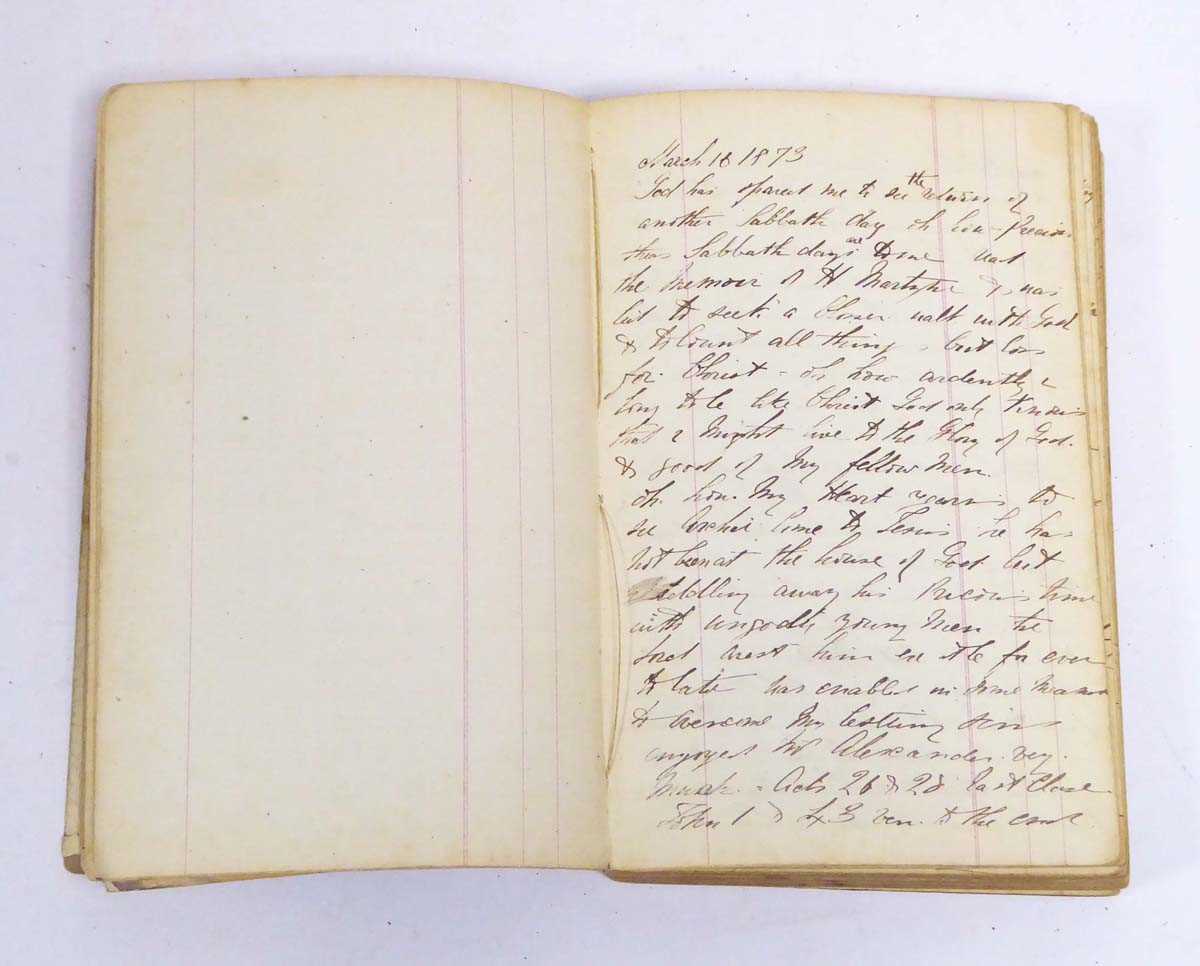 March 16 1873
God has spared me to see the return of
another Sabbath day oh how Precious
thes Sabbath days are to me read
the Memoir of H Martyn & was
led to seek a Closer walk with God
& to Count all things but loss
for Christ - oh how ardently I
long to be like Christ God only knows
that I Might live to the Glory of God.
& good of My fellow Men.
oh how My Heart yearns to
see Archie Come to Jesus he has
not been at the house of God but
fiddling away his Precious time
with ungodly young Men the
Lord arest him ere it be for ever
to late was enabled in some Measure
to overcome My besetting sins
enjoyed Mr Alexander very
Much - Acts 26 & 28 last Clase
John 1 & 43 ver. to the end